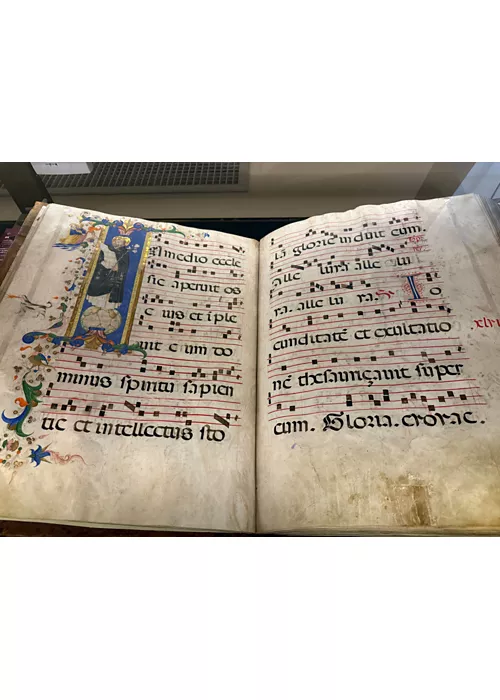 In medio eccle
sie aperuit os
e ius et iple
uit e um do
minus spiritu sapien
tie et intellectus sto
la glorie induit eum.
alle luia alle lu
ia. alle lu ia. Io
cunditatē et exultatio
nē thesauriçauit super
eum. Gloria. euouae.